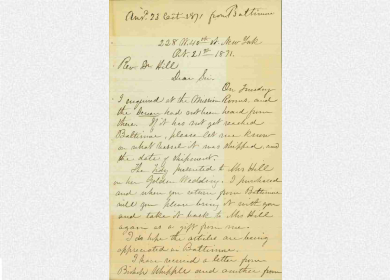 Ansd. 23 Oct 1871 from Baltimore
228 W. 42nd St New York
Oct. 21st 1871.
Rev Dr Hill
Dear Sir.
On Tuesday
I enquired at the Mission Rooms and
the had not been heard from
there. If it has not yet reached
Baltimore, please let me know
in what vessel it was shipped, and
the date of shipment.
The Tidy presented to Mrs Hill
on her Golden Wedding, I purchased
and when you return from Baltimore
will you please bring it with you
and take it back to Mrs Hill
again as a gift from me.
I do hope the articles are being
appreciated in Baltimore.
I have received a letter from
Bishop Whipple and another from